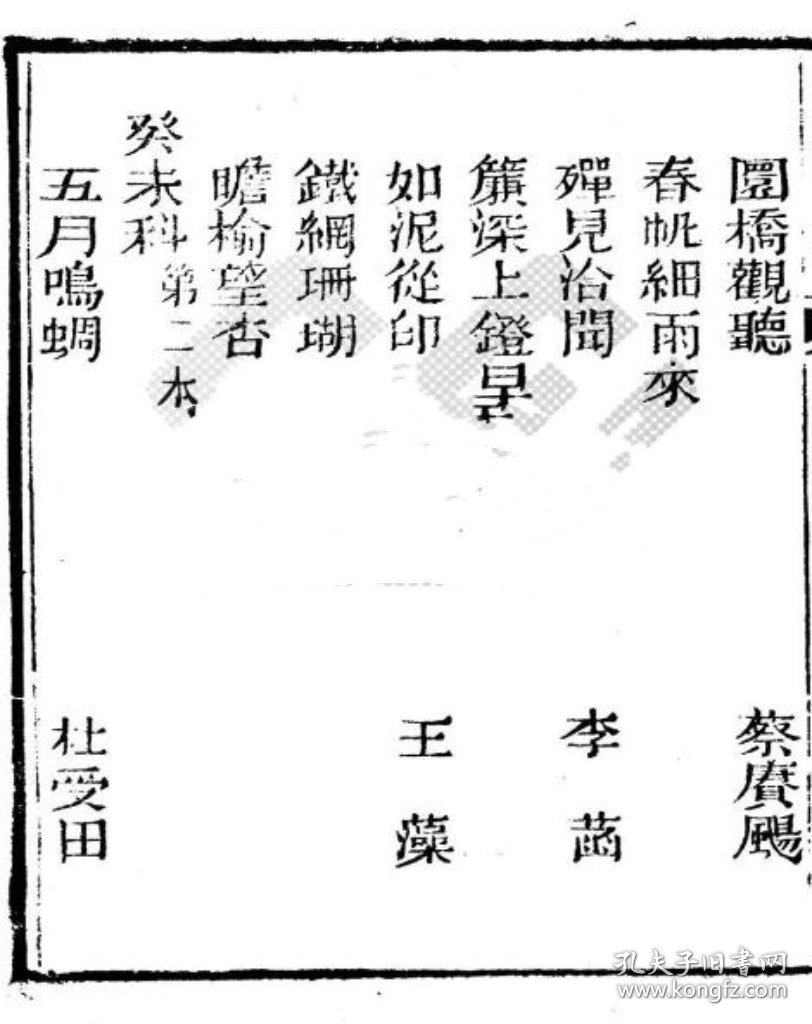 圜橋觀聽 蔡賡颺
春帆細雨來
殫見洽聞 李菡
簾深上鐙早
如泥從印 王藻
鐵網珊瑚
瞻榆望杏
癸未科第二本
五月鳴蜩 杜受田
孔夫子旧书网
www.kongfz.com